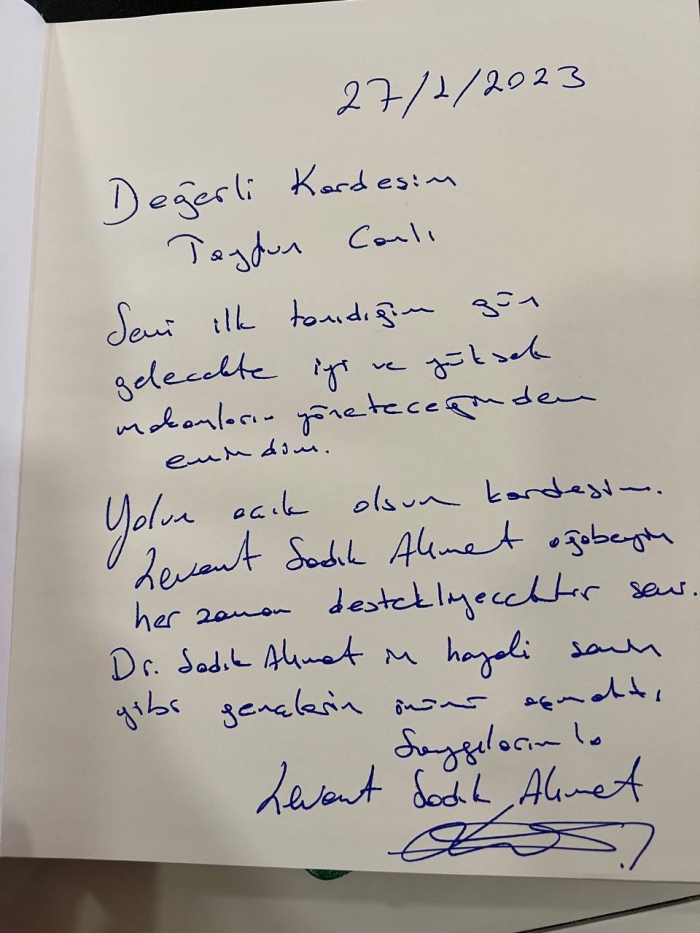 27/1/2023
Değerli Kardeşim
Taydun Canlı
Seni ilk tanıdığım gün
gelecekte iyi ve yüksek
makamların yöneteceğinden
emindim.
Yolun açık olsun kardeşim.
Levent Sadık Ahmet ağabeyin
her zaman destekliyecektir seni.
Dr. Sadık Ahmet in hayali senin
gibi gençlerin önünü açmaktı,
Saygılarımla
Levent Sadık Ahmet